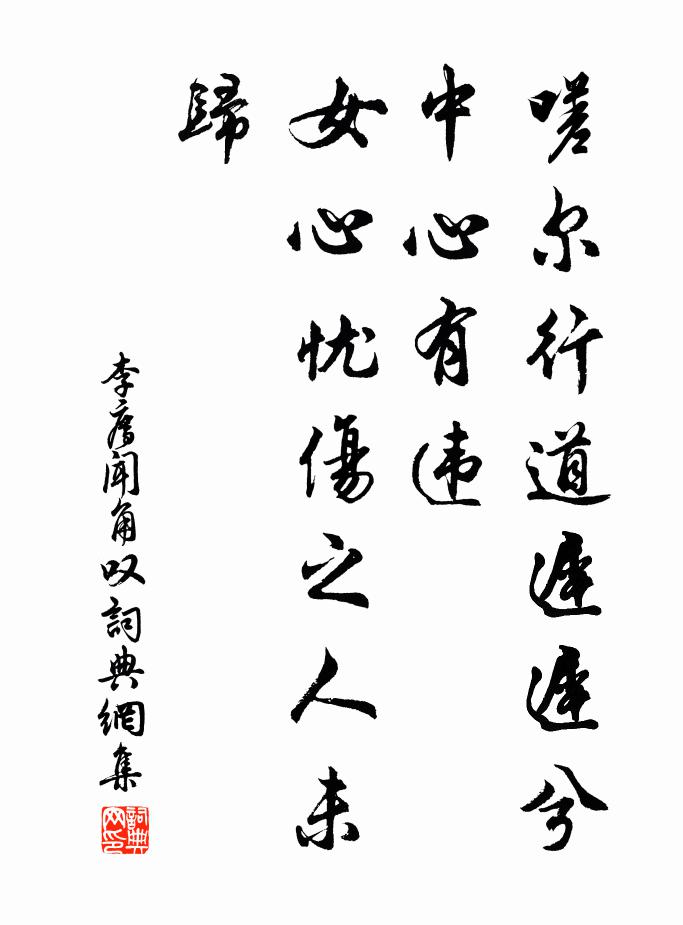 嗟尔行道遲遲兮
中心有违
女心忧傷之人未
歸
李廌闻角叹詞典網集
詞典网印